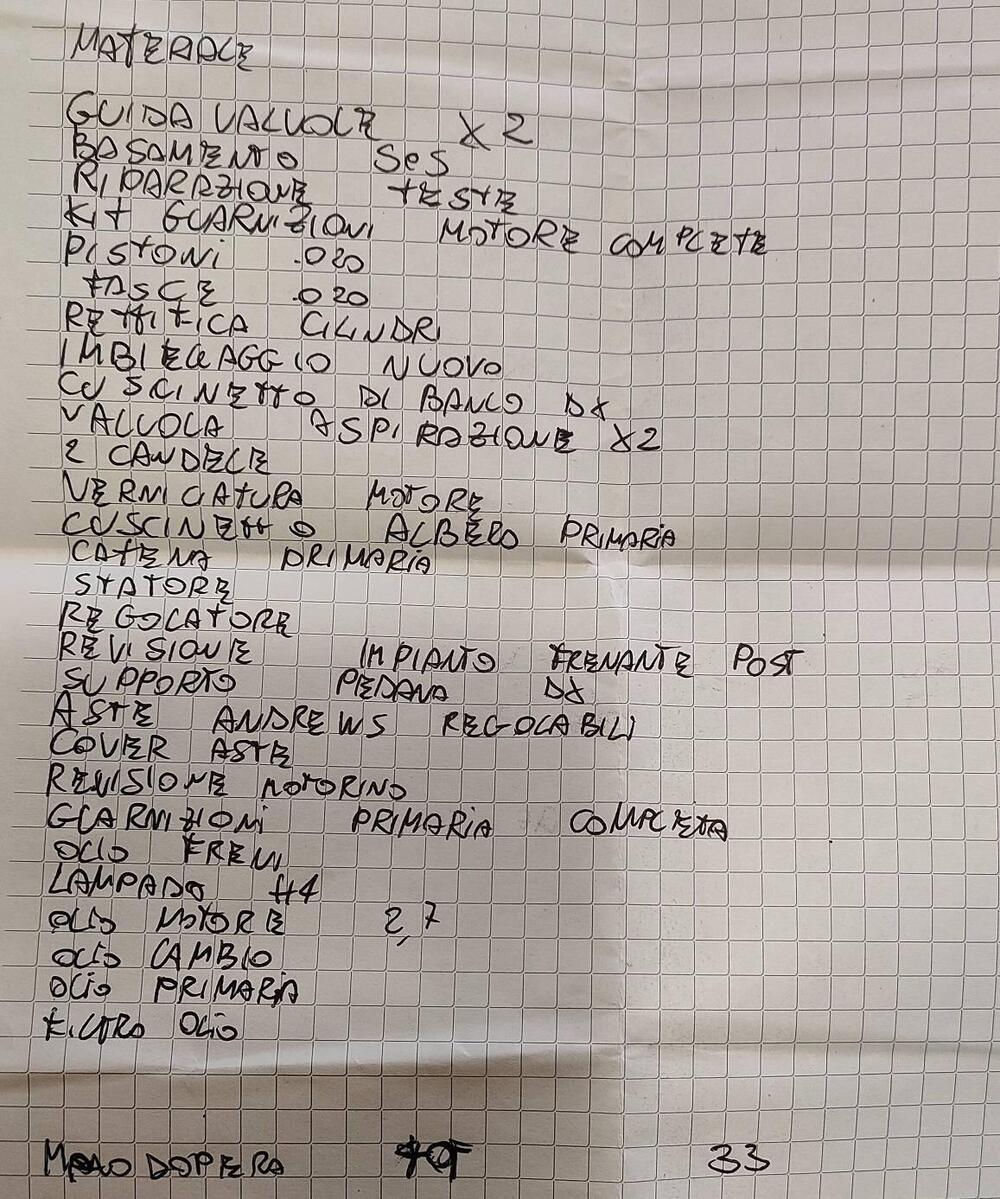 MATERIALE
GUIDA VALVOLE X2
BASAMENTO S&S
RIPARAZIONE TESTE
KIT GUARNIZIONI MOTORE COMPLETE
PISTONI .020
FASCE .020
RETTIFICA CILINDRI
IMBIELLAGGIO NUOVO
CUSCINETTO DI BANCO DX
VALVOLA ASPIRAZIONE X2
2 CANDELE
VERNICIATURA MOTORE
CUSCINETTO ALBERO PRIMARIA
CATENA PRIMARIA
STATORE
REGOLATORE
REVISIONE IMPIANTO FRENANTE POST
SUPPORTO PEDANA DX
ASTE ANDREWS REGOLABILI
COVER ASTE
REVISIONE MOTORINO
GUARNIZIONI PRIMARIA COMPLETA
OLIO FRENI
LAMPADA H4
OLIO MOTORE 2,7
OLIO CAMBIO
OLIO PRIMARIA
FILTRO OLIO
MANO DOPERA 33